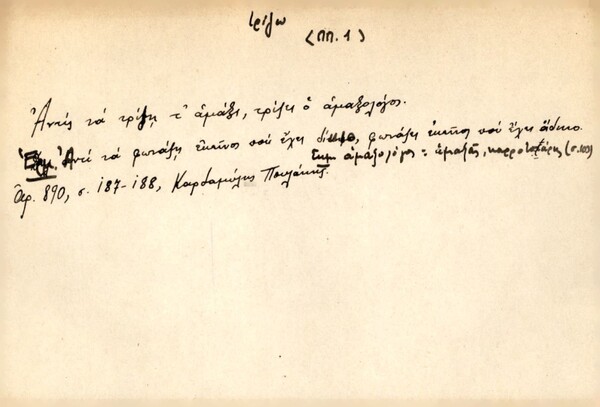 τρίζω
(ΠΠ. 1)
Ἀντίς νά τρίζῃ τ' ἁμάξι, τρίζει ὁ ἁμαξολόγος.
Ἑξήγ. Ἀντί νά φωνάζῃ ἐκεῖνος πού ἔχει δίκηο, φωνάζει ἐκεῖνος πού ἔχει ἄδικο.
Σημ. ἁμαξολόγος = ἁμαξᾶς, καρροτσέρης (σ. 109)
Ἀρ. 890, σ. 187-188, Καρδαμύλης Πουλάκης.